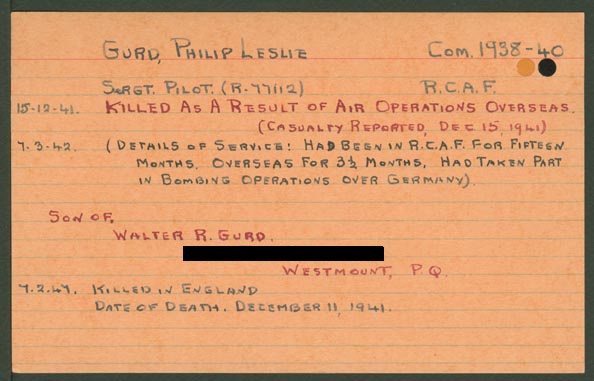 GURD, PHILIP LESLIE COM. 1938-40
SERGT. PILOT. (R-77112) R.C.A.F.
15-12-41. KILLED AS A RESULT OF AIR OPERATIONS OVERSEAS.
(CASUALTY REPORTED, DEC 15, 1941)
7.3.42. (DETAILS OF SERVICE: HAD BEEN IN R.C.A.F. FOR FIFTEEN
MONTHS, OVERSEAS FOR 3½ MONTHS, HAD TAKEN PART
IN BOMBING OPERATIONS OVER GERMANY).
SON OF,
WALTER R. GURD.
WESTMOUNT, P.Q.
7.2.47. KILLED IN ENGLAND
DATE OF DEATH. DECEMBER 11, 1941.